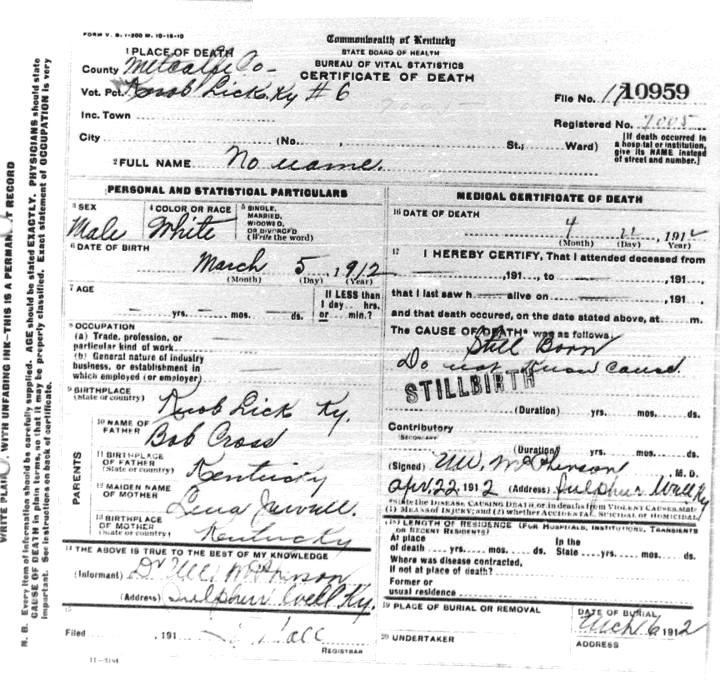 FORM V. S. 1-200 M. 10-16-10
Commonwealth of Kentucky
STATE BOARD OF HEALTH
BUREAU OF VITAL STATISTICS
CERTIFICATE OF DEATH
1 PLACE OF DEATH
County Metcalfe Co
Vot. Pct. Knob Lick Ky #6
File No. 10959
Inc. Town
Registered No. 7005
City (No. , St.; Ward)
[If death occurred in a hospital or institution, give its NAME instead of street and number.]
2 FULL NAME No name.
PERSONAL AND STATISTICAL PARTICULARS
3 SEX
Male
4 COLOR OR RACE
White
5 SINGLE,
MARRIED,
WIDOWED,
OR DIVORCED
(Write the word)
6 DATE OF BIRTH
March 5, 1912
(Month) (Day) (Year)
7 AGE
yrs. mos. ds.
If LESS than
1 day hrs.
or min.?
8 OCCUPATION
(a) Trade, profession, or
particular kind of work
(b) General nature of industry
business, or establishment in
which employed (or employer)
9 BIRTHPLACE
(State or country)
Knob Lick Ky.
PARENTS
10 NAME OF
FATHER
Bob Cross
11 BIRTHPLACE
OF FATHER
(State or country)
Kentucky
12 MAIDEN NAME
OF MOTHER
Lena
13 BIRTHPLACE
OF MOTHER
(State or country)
Kentucky
14 THE ABOVE IS TRUE TO THE BEST OF MY KNOWLEDGE
(Informant) Dr
(Address) Sulphur Well Ky.
15
Filed , 191
REGISTRAR
11-3184
MEDICAL CERTIFICATE OF DEATH
16 DATE OF DEATH
4 , 1912
(Month) (Day) (Year)
17 I HEREBY CERTIFY, That I attended deceased from
, 191 , to , 191 ,
that I last saw h alive on , 191 ,
and that death occured, on the date stated above, at m.
The CAUSE OF DEATH* was as follows:
Still Born
Do not know cause.
STILLBIRTH
(Duration) yrs. mos. ds.
Contributory
SECONDARY
(Duration) yrs. mos. ds.
(Signed) M. D.
Apr. 22 1912 (Address) Sulphur Well Ky
*State the DISEASE CAUSING DEATH, or, in deaths from VIOLENT CAUSES, state
(1) MEANS OF INJURY; and (2) whether ACCIDENTAL, SUICIDAL or HOMICIDAL.
18 LENGTH OF RESIDENCE (FOR HOSPITALS, INSTITUTIONS, TRANSIENTS
OR RECENT RESIDENTS)
At place In the
of death yrs. mos. ds. State yrs. mos. ds.
Where was disease contracted,
if not at place of death?
Former or
usual residence
19 PLACE OF BURIAL OR REMOVAL
DATE OF BURIAL
Mch 6 1912
20 UNDERTAKER
ADDRESS
WRITE PLAINLY, WITH UNFADING INK—THIS IS A PERMANENT RECORD
N. B. Every item of information should be carefully supplied. AGE should be stated EXACTLY. PHYSICIANS should state
CAUSE OF DEATH in plain terms, so that it may be properly classified. Exact statement of OCCUPATION is very
important. See instructions on back of certificate.